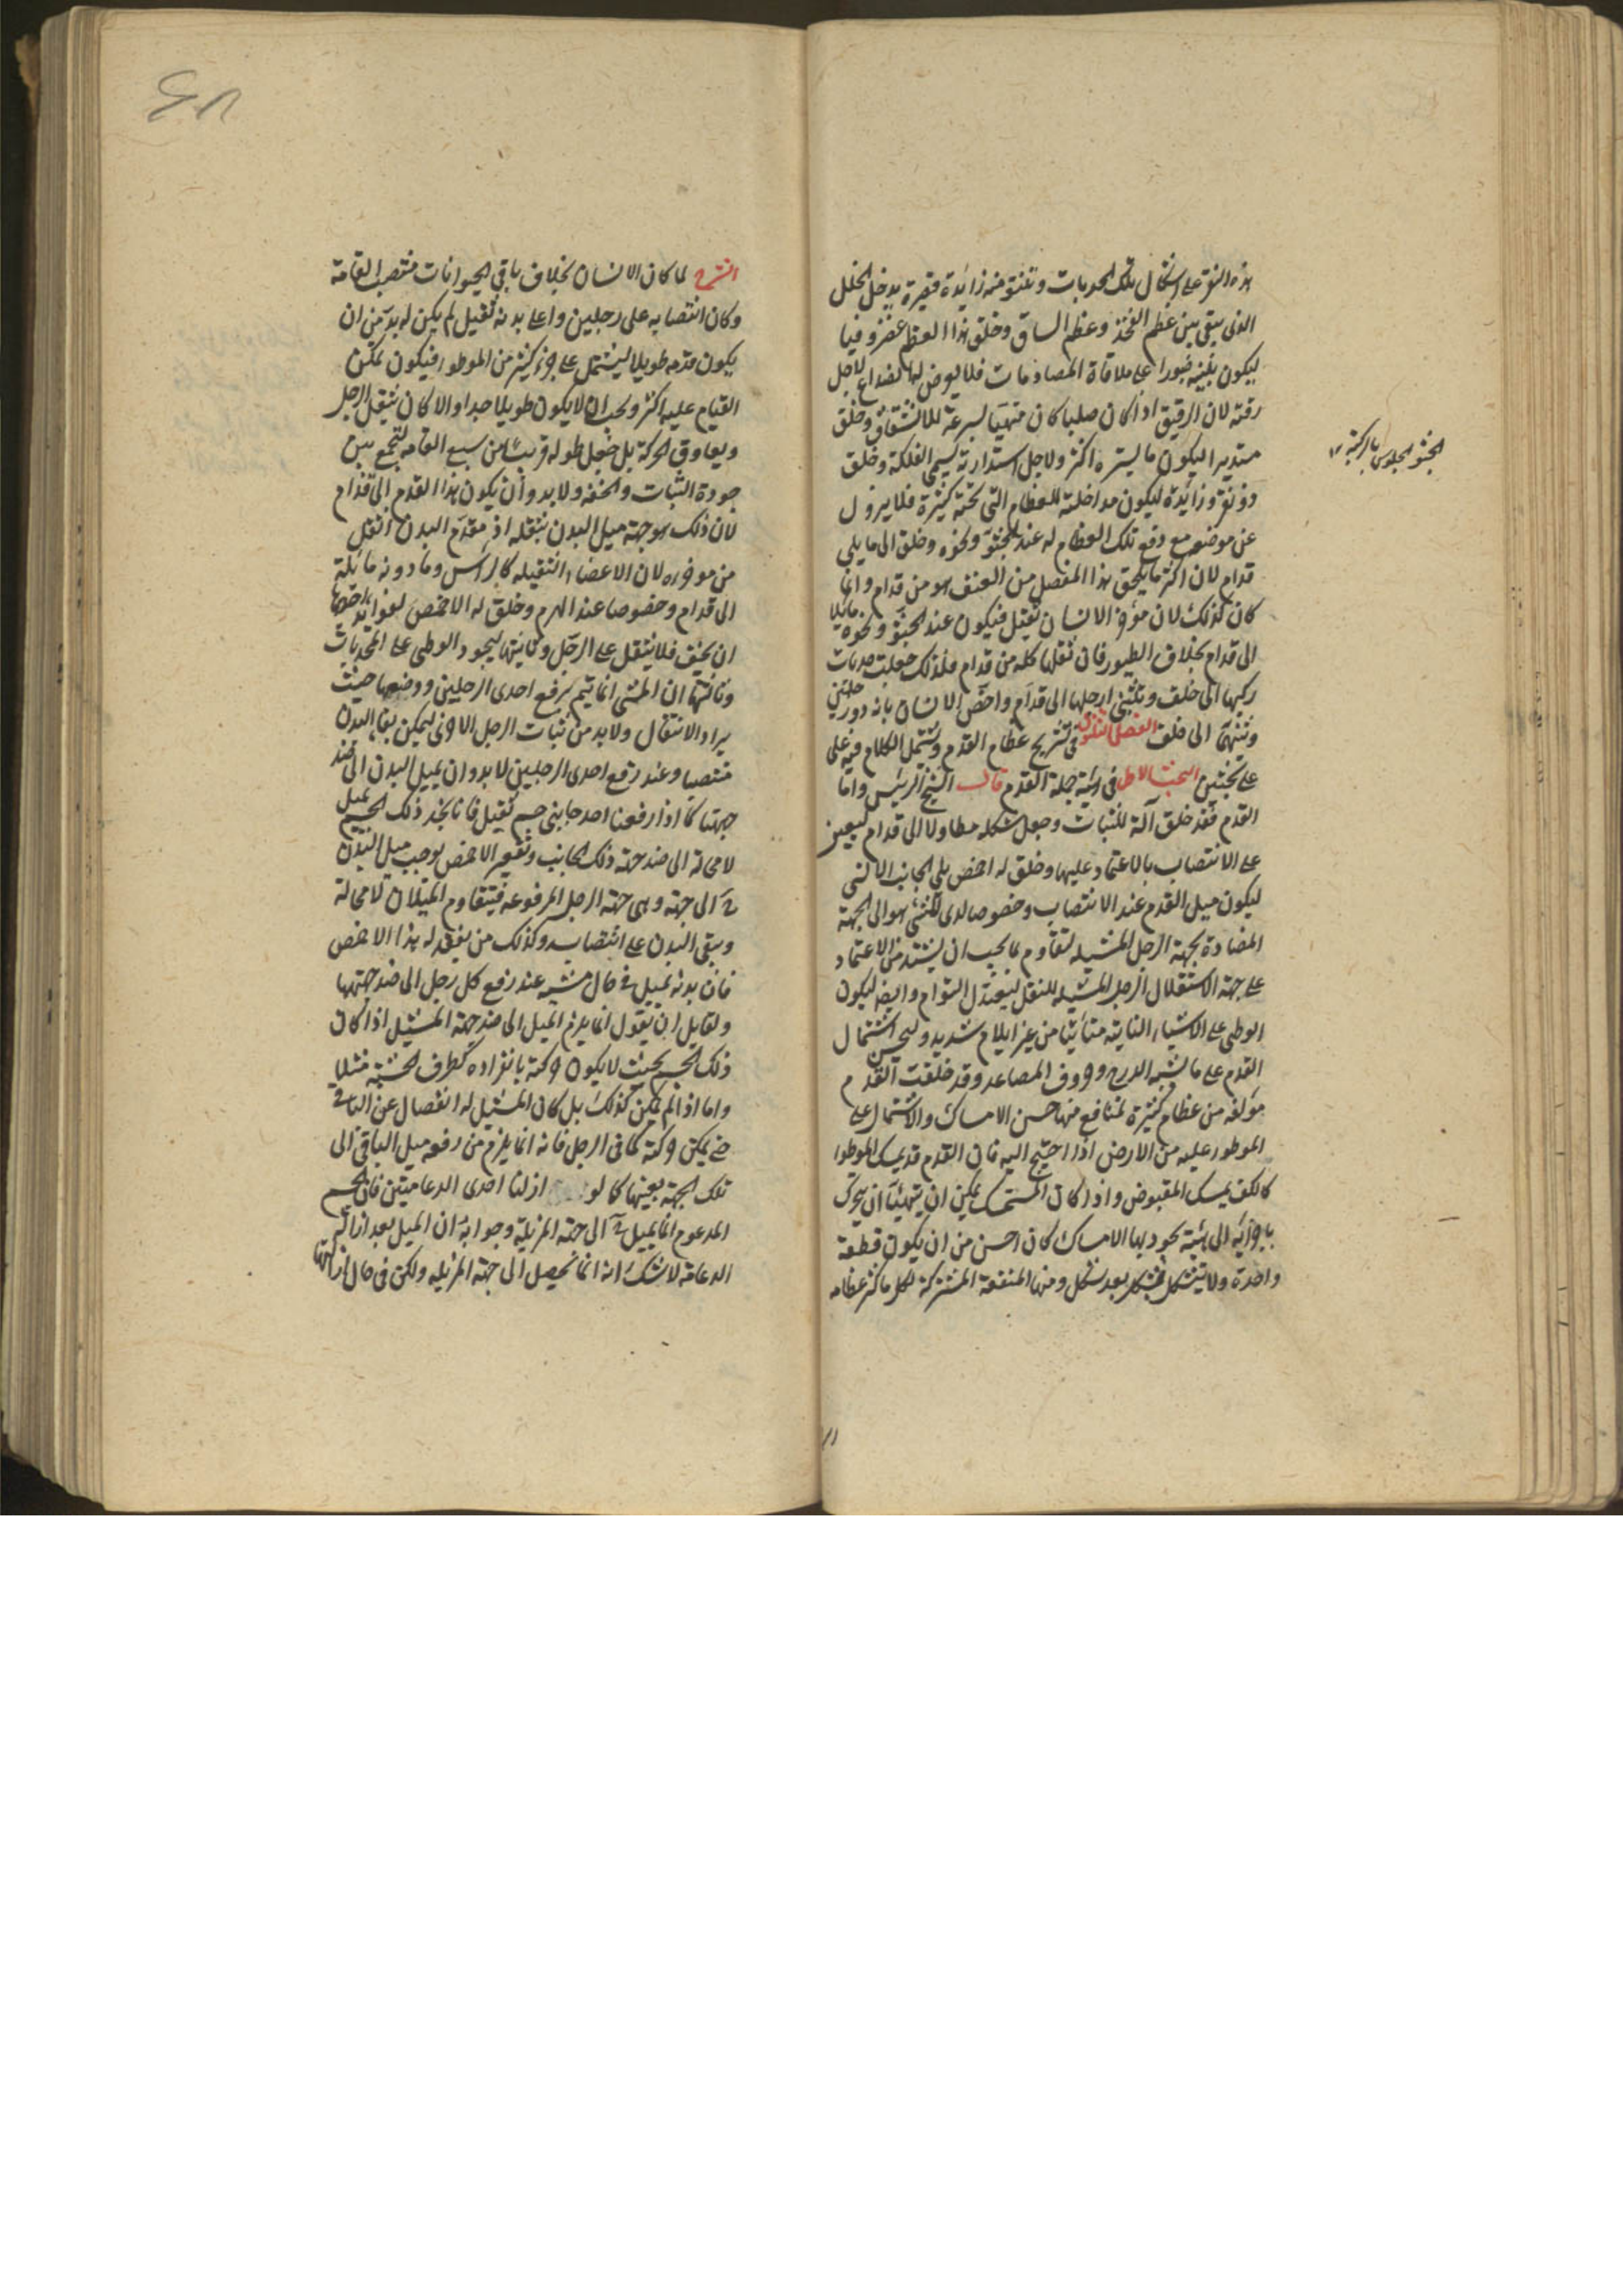 هذه النقر على اشكال تلك الحدبات وتنتو منه زائدة قصيرة يدخل الخلل
الذى يبقى بين عظم الفخذ وعظم الساق وخلق هذا العظم غضروفيا
ليكون بلينه صبورا على ملاقاة المصادمات فلا يعرض لها انصداع لاجل
رقته لان الرقيق اذا كان صلبا كان متهيا لسرعة للانشقاق وخلق
مستديرا ليكون ما يستره اكثر ولاجل استدارته يسمى الفلكة وخلق
ذو نقر وزائدة ليكون مداخلته للعظام التى تحته كثيرة فلا يزول
عن موضعه مع دفع تلك العظام له عند الجثو ونحوه وخلق الى ما يلى
قدام لان اكثر ما يلحق هذا المفصل من العنف هو من قدام وانما
كان كذلك لان مؤخر الانسان ثقيل فيكون عند الجثو ونحوه مايلا
الى قدام بخلاف الطيور فان ثقلها كله من قدام فلذلك جعلت حدبات
ركبها الى خلف وتنثنى ارجلها الى قدام واخص الانسان بانه ذو رجلين
وتنثنيا الى خلف الفصل الثلاثون فى تشريح عظام القدم ويشتمل الكلام فيه على
على بحثين البحث الاول فى هيئة جملة القدم قال الشيخ الرئيس واما
القدم فقد خلق آلة للثبات وجعل شكله مطاولا الى قدام ليعين
على الانتصاب بالاعتماد عليها وخلق له اخمص يلى الجانب الانسى
ليكون ميل القدم عند الانتصاب وخصوصا لدى المشى هو الى الجهة
المضادة لجهة الرجل المشيله لتقاوم ما يجب ان يشتد من الاعتماد
على جهة الاستقلال الرجل المشيله للنقل ليعتدل القوام وايضه ليكون
الوطى على الاشياء الناتية متأتيا من غير ايلام شديد وليحسن اشتمال
القدم على ما يشبه الدرج وحروف المصاعد وقد خلقت القدم
مؤلفه من عظام كثيرة لمنافع منها حسن الامساك والاشتمال على
الموطوء عليه من الارض اذا احتيج اليه فان القدم قد يمسك الموطوا
كالكف يمسك المقبوض واذا كان المستمسك يمكن ان يتهيئا ان يتحرك
باجزائه الى هيئة يجود بها الامساك كان احسن من ان يكون قطعة
واحدة ولا يتشكل بشكل بعد شكل ومنها المنفعة المشتركة لكل ما كثر عظامه
الجثو الجلوس بالركبة ١٢
الشرح لما كان الانسان بخلاف باقى الحيوانات منتصب القامة
وكان انتصابه على رجلين واعلى بدنه ثقيل لم يكن له بد من ان
يكون قدمه طويلا ليشتمل على جزء كثير من الموطوء فيكون تمكن
القيام عليه اكثر ويجب ان لا يكون طويلا جدا والا كان يثقل الرجل
ويعاوق الحركة بل جعل طوله قريبا من سبع القامه لتجمع بين
جودة الثبات والخفه ولا بد وأن يكون هذا القدم الى قدام
لان ذلك هو جهة ميل البدن بثقله اذ مقدم البدن اثقل
من موخره لان الاعضاء الثقيله كالرأس وما دونه مائلة
الى قدام وخصوصا عند الهرم وخلق له الاخمص لفوايد احديها
ان يخف فلا يثقل على الرجل وثانيتها ليجود الوطى على المحدبات
وثالثتها ان المشى انما يتم برفع احدى الرجلين ووضعها حيث
يراد الانتقال ولا بد من ثبات الرجل الاخرى ليمكن بقاء البدن
منتصبا وعند رفع احدى الرجلين لا بد وان يميل البدن الى ضد
جهتها كما اذا رفعنا احد جانبى جسم ثقيل فانا نجد ذلك الجسم يميل
لا محالة الى ضد جهة ذلك الجانب وتقعير الاخمص يوجب ميل البدن
ح الى جهته وهى جهة الرجل المرفوعه فيتقاوم الميلان لا محالة
ويبقى البدن على انتصابه وكذلك من يفقد له هذا الاخمص
فان بدنه يميل فى حال مشيه عند رفع كل رجل الى ضد جهتها
ولقايل ان يقول انما يلزم الميل الى ضد جهة المشيل اذا كان
ذلك الجسم بحيث لا يكون حركته بانفراده كطرف الخشبة مثلا
واما اذا لم يكن كذلك بل كان المشيل له انفصال عن الباقى
حتى يمكن حركته كما فى الرجل فانه انما يلزم من رفعه ميل الباقى الى
تلك الجهة بعينها كما لو ازلنا احدى الدعامتين فان الجسم
المدعوم انما يميل ح الى جهة المزيلة وجوابه ان الميل بعد ازالة
الدعامة لا شك انه انما يحصل الى جهة المزيله ولكن فى حال ازالتها